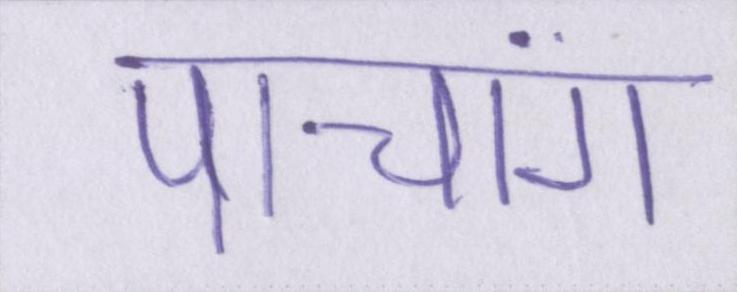 पाचांग